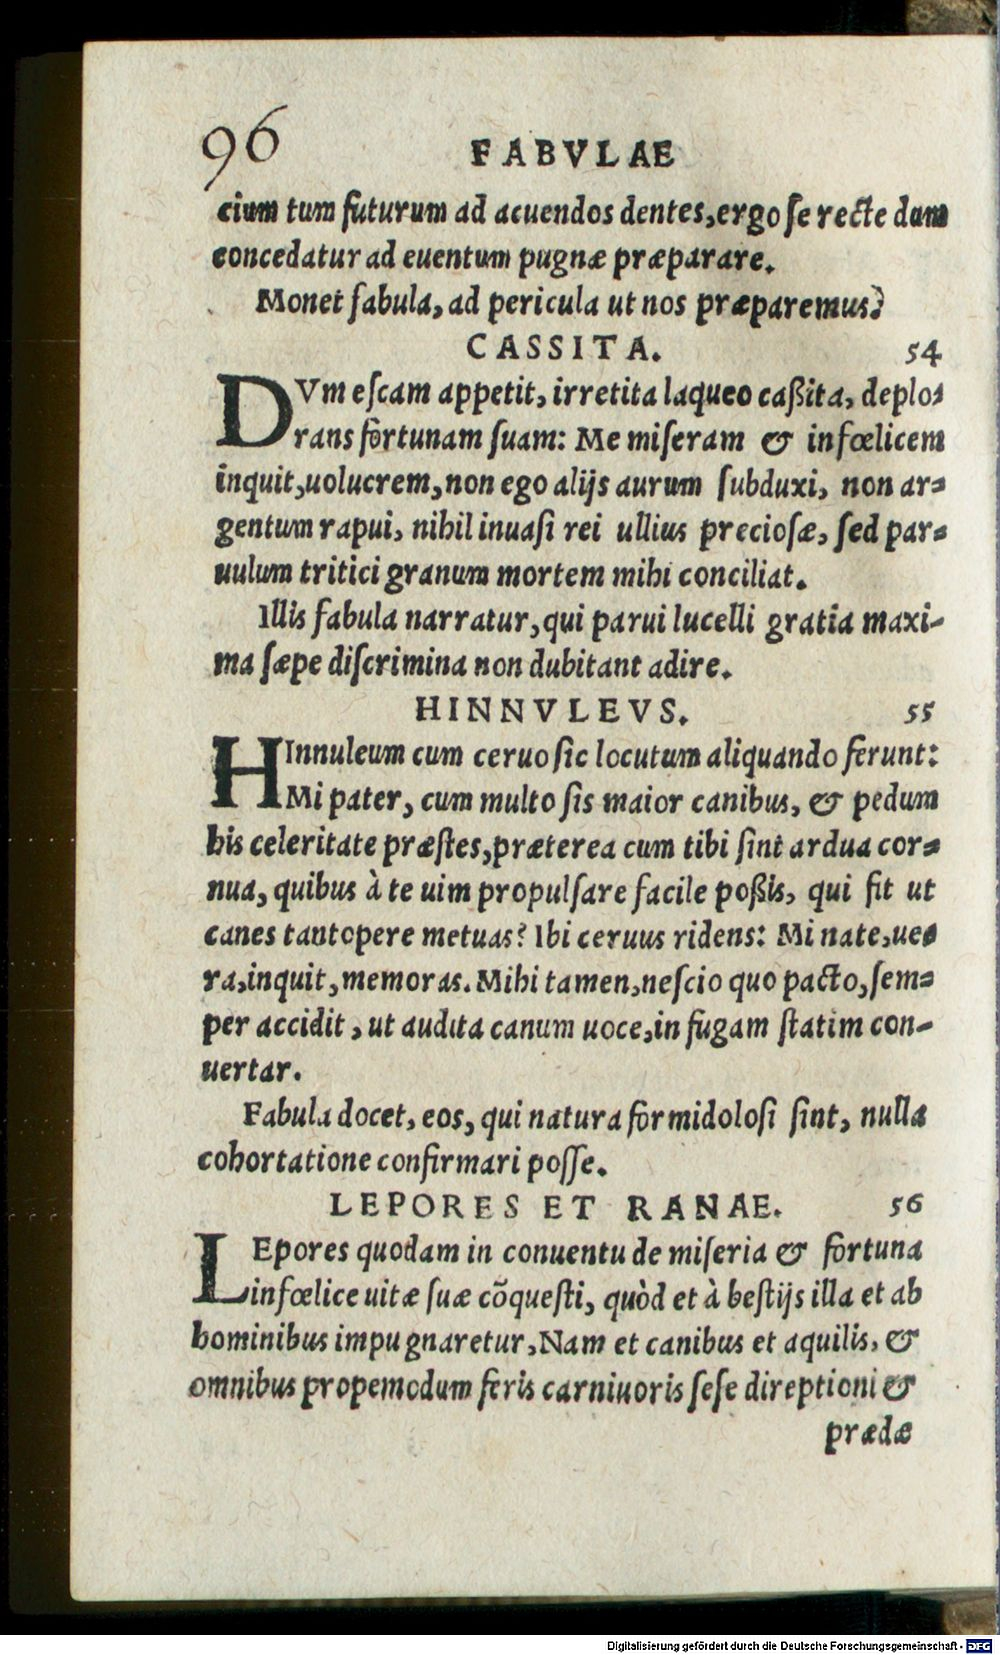 96
FABVLAE
cium tum futurum ad acuendos dentes, ergo ſe recte dum
concedatur ad euentum pugnæ præparare.
Monet fabula, ad pericula ut nos præparemus.
CASSITA. 54
DVm eſcam appetit, irretita laqueo caßita, deplo-
rans fortunam ſuam: Me miſeram & infœlicem
inquit, uolucrem, non ego alijs aurum ſubduxi, non ar-
gentum rapui, nihil inuaſi rei ullius precioſæ, ſed par-
uulum tritici granum mortem mihi conciliat.
Illis fabula narratur, qui parui lucelli gratia maxi-
ma ſæpe diſcrimina non dubitant adire.
HINNVLEVS. 55
HInnuleum cum ceruo ſic locutum aliquando ferunt:
Mi pater, cum multo ſis maior canibus, & pedum
his celeritate præſtes, præterea cum tibi ſint ardua cor-
nua, quibus à te uim propulſare facile poßis, qui fit ut
canes tantopere metuas? Ibi ceruus ridens: Mi nate, ue-
ra, inquit, memoras. Mihi tamen, neſcio quo pacto, ſem-
per accidit, ut audita canum uoce, in fugam ſtatim con-
uertar.
Fabula docet, eos, qui natura formidoloſi ſint, nulla
cohortatione confirmari poſſe.
LEPORES ET RANAE. 56
LEpores quodam in conuentu de miſeria & fortuna
infœlice uitæ ſuæ cõqueſti, quòd et à beſtijs illa et ab
hominibus impugnaretur, Nam et canibus et aquilis, &
omnibus propemodum feris carniuoris ſeſe direptioni &
prædæ
Digitalisierung gefördert durch die Deutsche Forschungsgemeinschaft - DFG